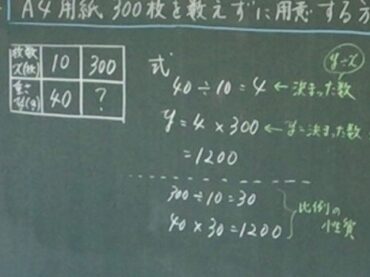 A4用紙300枚を数えずに用意する方
枚数 x(枚) 10 300
重さ y(g) 40 ?
式
y÷x
40÷10=4 ← 決まった数
y=4×300 ← y=決まった数
=1200
300÷10=30
40×30=1200
比例の
性質